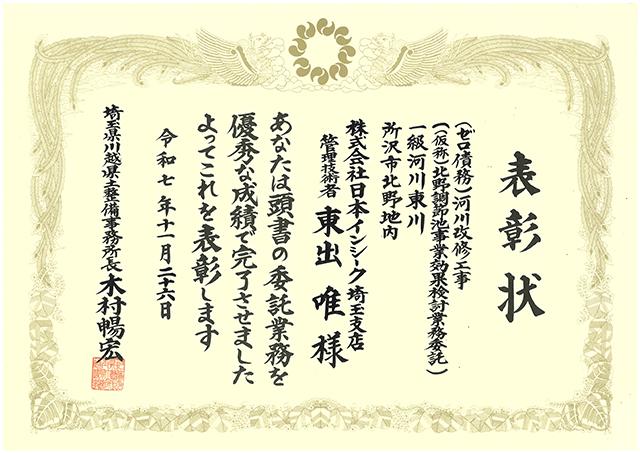 表彰状
(ゼロ債務)河川改修工事
((仮称)北野調節池事業効果検討業務委託)
一級河川東川
所沢市北野地内
株式会社日本インシーク埼玉支店
管理技術者 東出 唯 様
あなたは頭書の委託業務を
優秀な成績で完了させました
よってこれを表彰します
令和七年十一月二十六日
埼玉県川越県土整備事務所長 木村暢宏